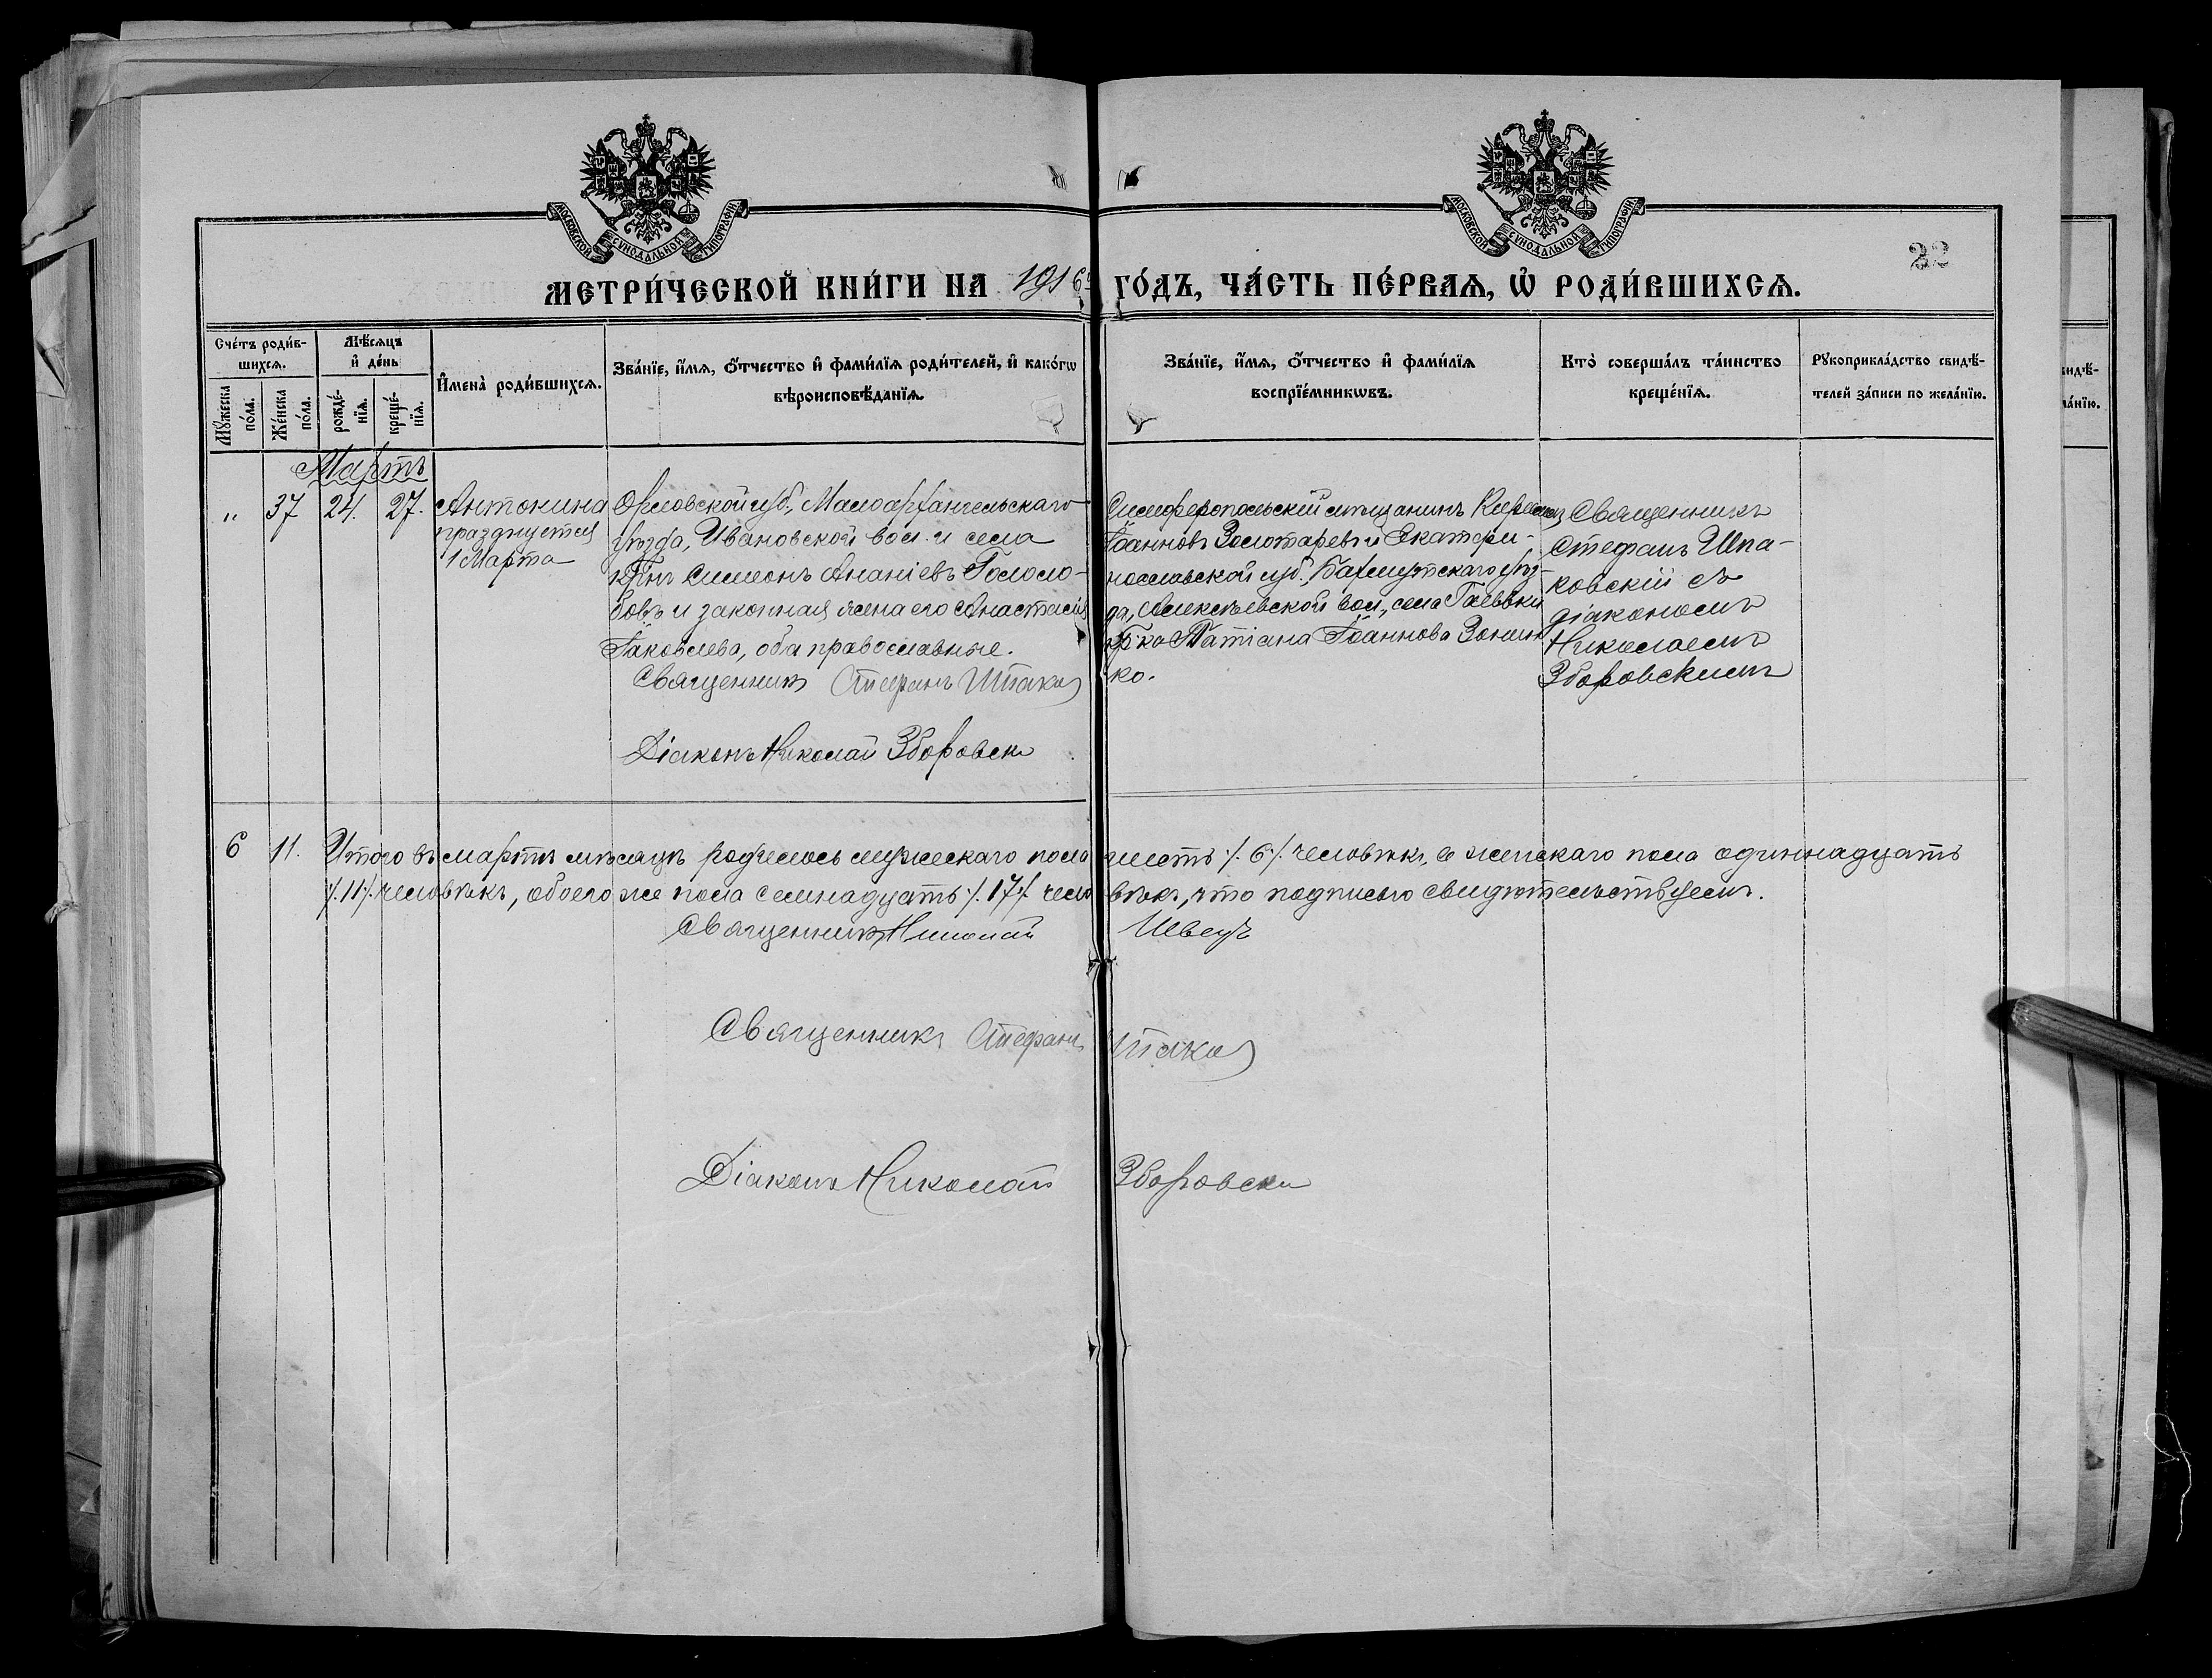 МОСКОВСКОЙ СѴНОДАЛЬНОЙ ТИПОГРАФІИ.
МОСКОВСКОЙ СѴНОДАЛЬНОЙ ТИПОГРАФІИ.
22
МЕТРИ́ЧЕСКОЙ КНИ́ГИ НА 1916 ГО́ДЪ, ЧА́СТЬ ПЕ́РВАѦ, Ѡ҆ РОДИ́ВШИХСѦ.
Сче́тъ роди́в-
шихсѧ.
Мꙋ́жеска по́ла.
Же́нска по́ла.
Мѣ́сѧцъ
и҆ де́нь
рожде́-
нїѧ.
креще́-
нїѧ.
И҆мена̀ роди́вшихсѧ.
Зва́нїе, и҆́мѧ, ѻ҆́тчество и҆ фами́лїѧ роди́телей, и҆ како́гѡ
вѣроисповѣ́данїѧ.
Зва́нїе, и҆́мѧ, ѻ҆́тчество и҆ фами́лїѧ
воспрїе́мникѡвъ.
Кто̀ соверша́лъ та́инство
креще́нїѧ.
Рꙋкоприкла́дство свидѣ́-
телей за́писи по жела́нїю.
Мартъ
" 37 24. 27.
Антонина
празднуется
1 Марта
Орловской губ., Малоархангельскаго
уѣзда, Ивановской вол. и села
кр-нъ Симеонъ Ананіевъ Гололо-
бовъ и законная жена его Анастасія
Іаковлева, оба православные.
Священникъ Стефанъ Шпаков
Діаконъ Николай Зборовски
Симферопольскій мѣщанинъ
Іоанновъ Золотаревъ и Екатери-
нославской губ. Бахмутскаго уѣз-
да, Алексѣевской вол., села
кр-ка Татіана Іоаннова
ко.
Священникъ
Стефанъ Шпа-
ковскій съ
діакономъ
Николаемъ
Зборовскимъ
6 11. Итого въ мартѣ мѣсяцѣ родилось мужескаго пола шесть /.6/. человѣкъ, а женскаго пола одиннадцать
/.11/. человѣкъ, обоего же пола семнадцать /.17/. человѣкъ, что подписью свидѣтельствуемъ.
Священникъ Николай Швецъ
Священникъ Стефанъ Шпаков
Діаконъ Николай Зборовски
видѣ́-
ла́нїю.